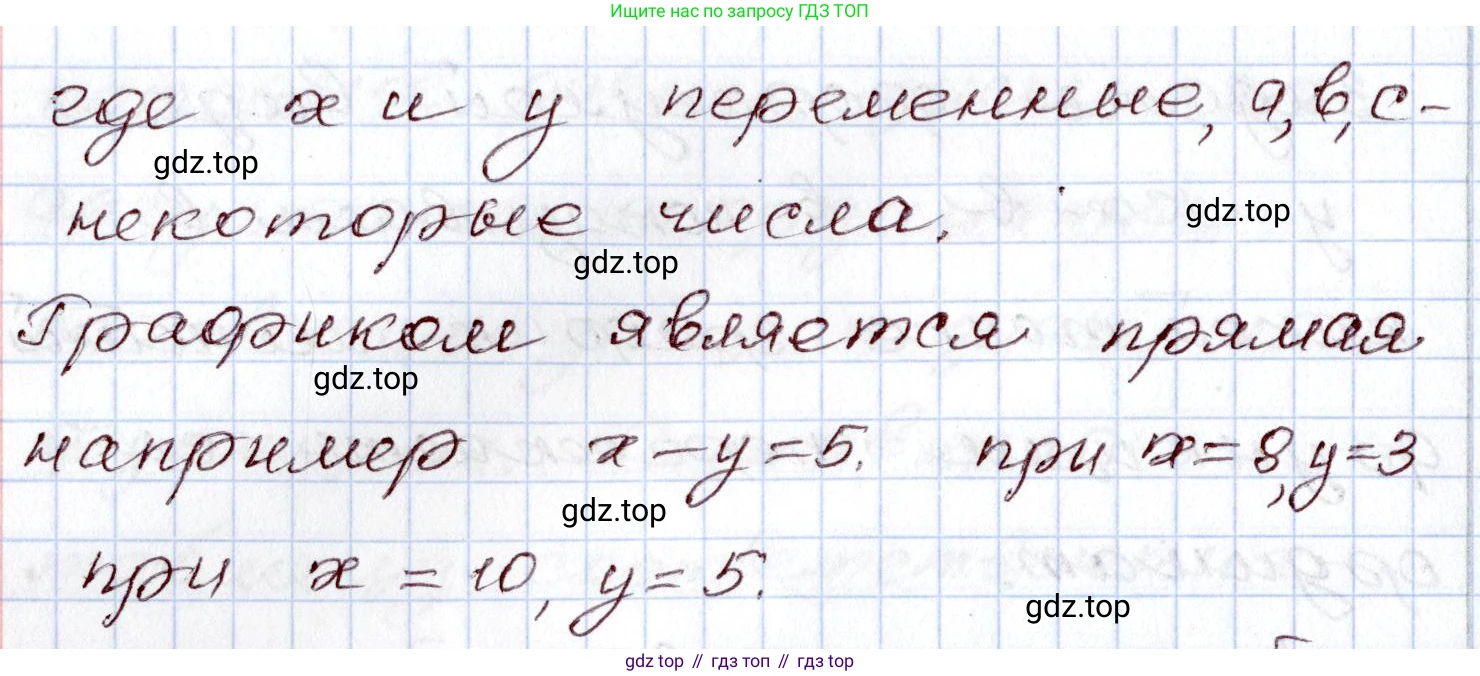 Ищите нас по запросу ГДЗ ТОП
где x и y переменные, a, в, с -
gdz.top
некоторые числа.
gdz.top
gdz.top
Графиком является прямая
gdz.top
например x - y = 5. при x = 8, y = 3
gdz.top
при x = 10, y = 5.
gdz.top
gdz.top // гдз топ // гдз top